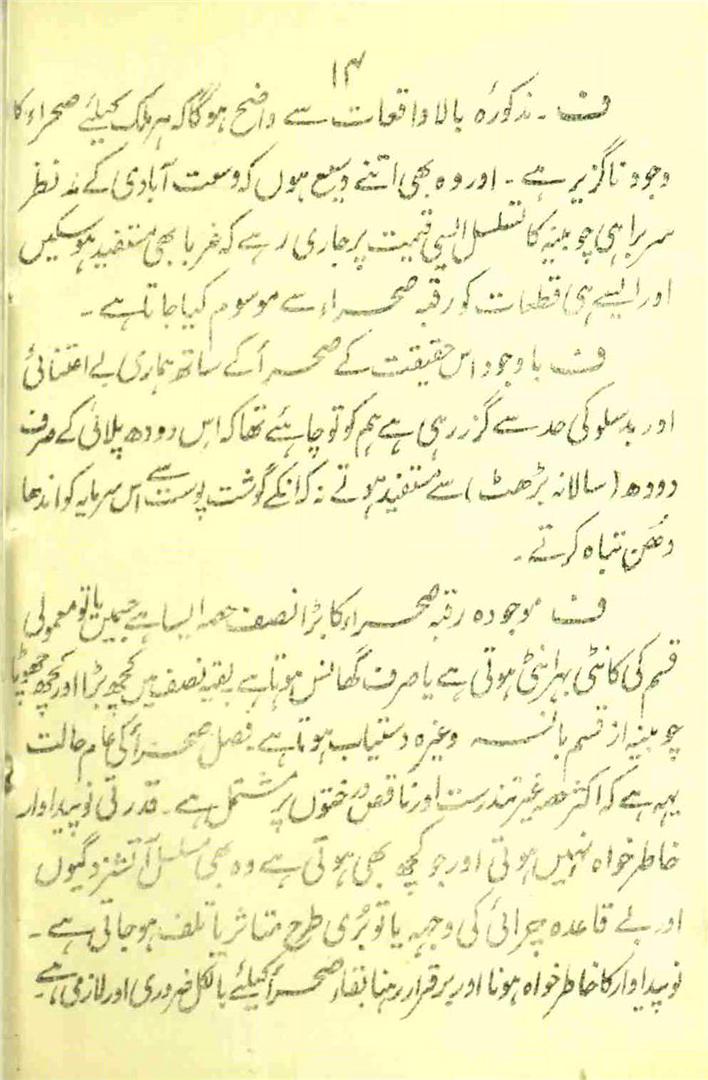 ۱۴
ف۔ مذکورۂ بالا واقعات سے واضح ہوگا کہ ہر ملک کیلئے صحراء کا
وجود ناگزیر ہے۔ اور وہ بھی اتنے وسیع ہوں کہ وسعت آبادی کے مد نظر
سربراہی چوبینہ کا تسلسل ایسی قیمت پر جاری رہے کہ غربا بھی مستفید ہو سکیں
اور ایسے ہی قطعات کو رقبہ صحراء سے موسوم کیا جاتا ہے۔
ف باوجود اس حقیقت کے صحرأ کے ساتھ ہماری بے اعتنائی
اور بدسلوکی حد سے گزر رہی ہے ہم کو تو چاہئے تھا کہ اس دودھ پلائی کے صرف
دودھ (سالانہ بڑھت) سے مستفید ہوتے نہ کہ انکے گوشت پوست سے اس سرمایہ کو اندھا
دھن تباہ کرتے۔
ف موجودہ رقبہ صحراء کا بڑا نصف حصہ ایسا ہے جسمیں یا تو معمولی
قسم کی کانٹی ہوتی ہے یا صرف گھانس ہوتا ہے بقیہ نصف میں کچھ بڑا اور کچھ چھوٹا
چوبینہ از قسم بالنسہ وغیرہ دستیاب ہوتا ہے۔ فصل صحرأ کی عام حالت
یہہ ہے کہ اکثر حصہ غیر تندرست اور ناقص درختوں پر مشتمل ہے۔ قدرتی نو پیداوار
خاطر خواہ نہیں ہوتی اور جو کچھ بھی ہوتی ہے وہ بھی مسلسل آتشزدگیوں
اور بے قاعدہ چرائی کی وجہہ یا تو بُری طرح متاثر یا تلف ہو جاتی ہے۔
نو پیداوار کا خاطر خواہ ہونا اور برقرار رہنا بقاء صحرأ کیلئے بالکل ضروری اور لازمی ہے۔